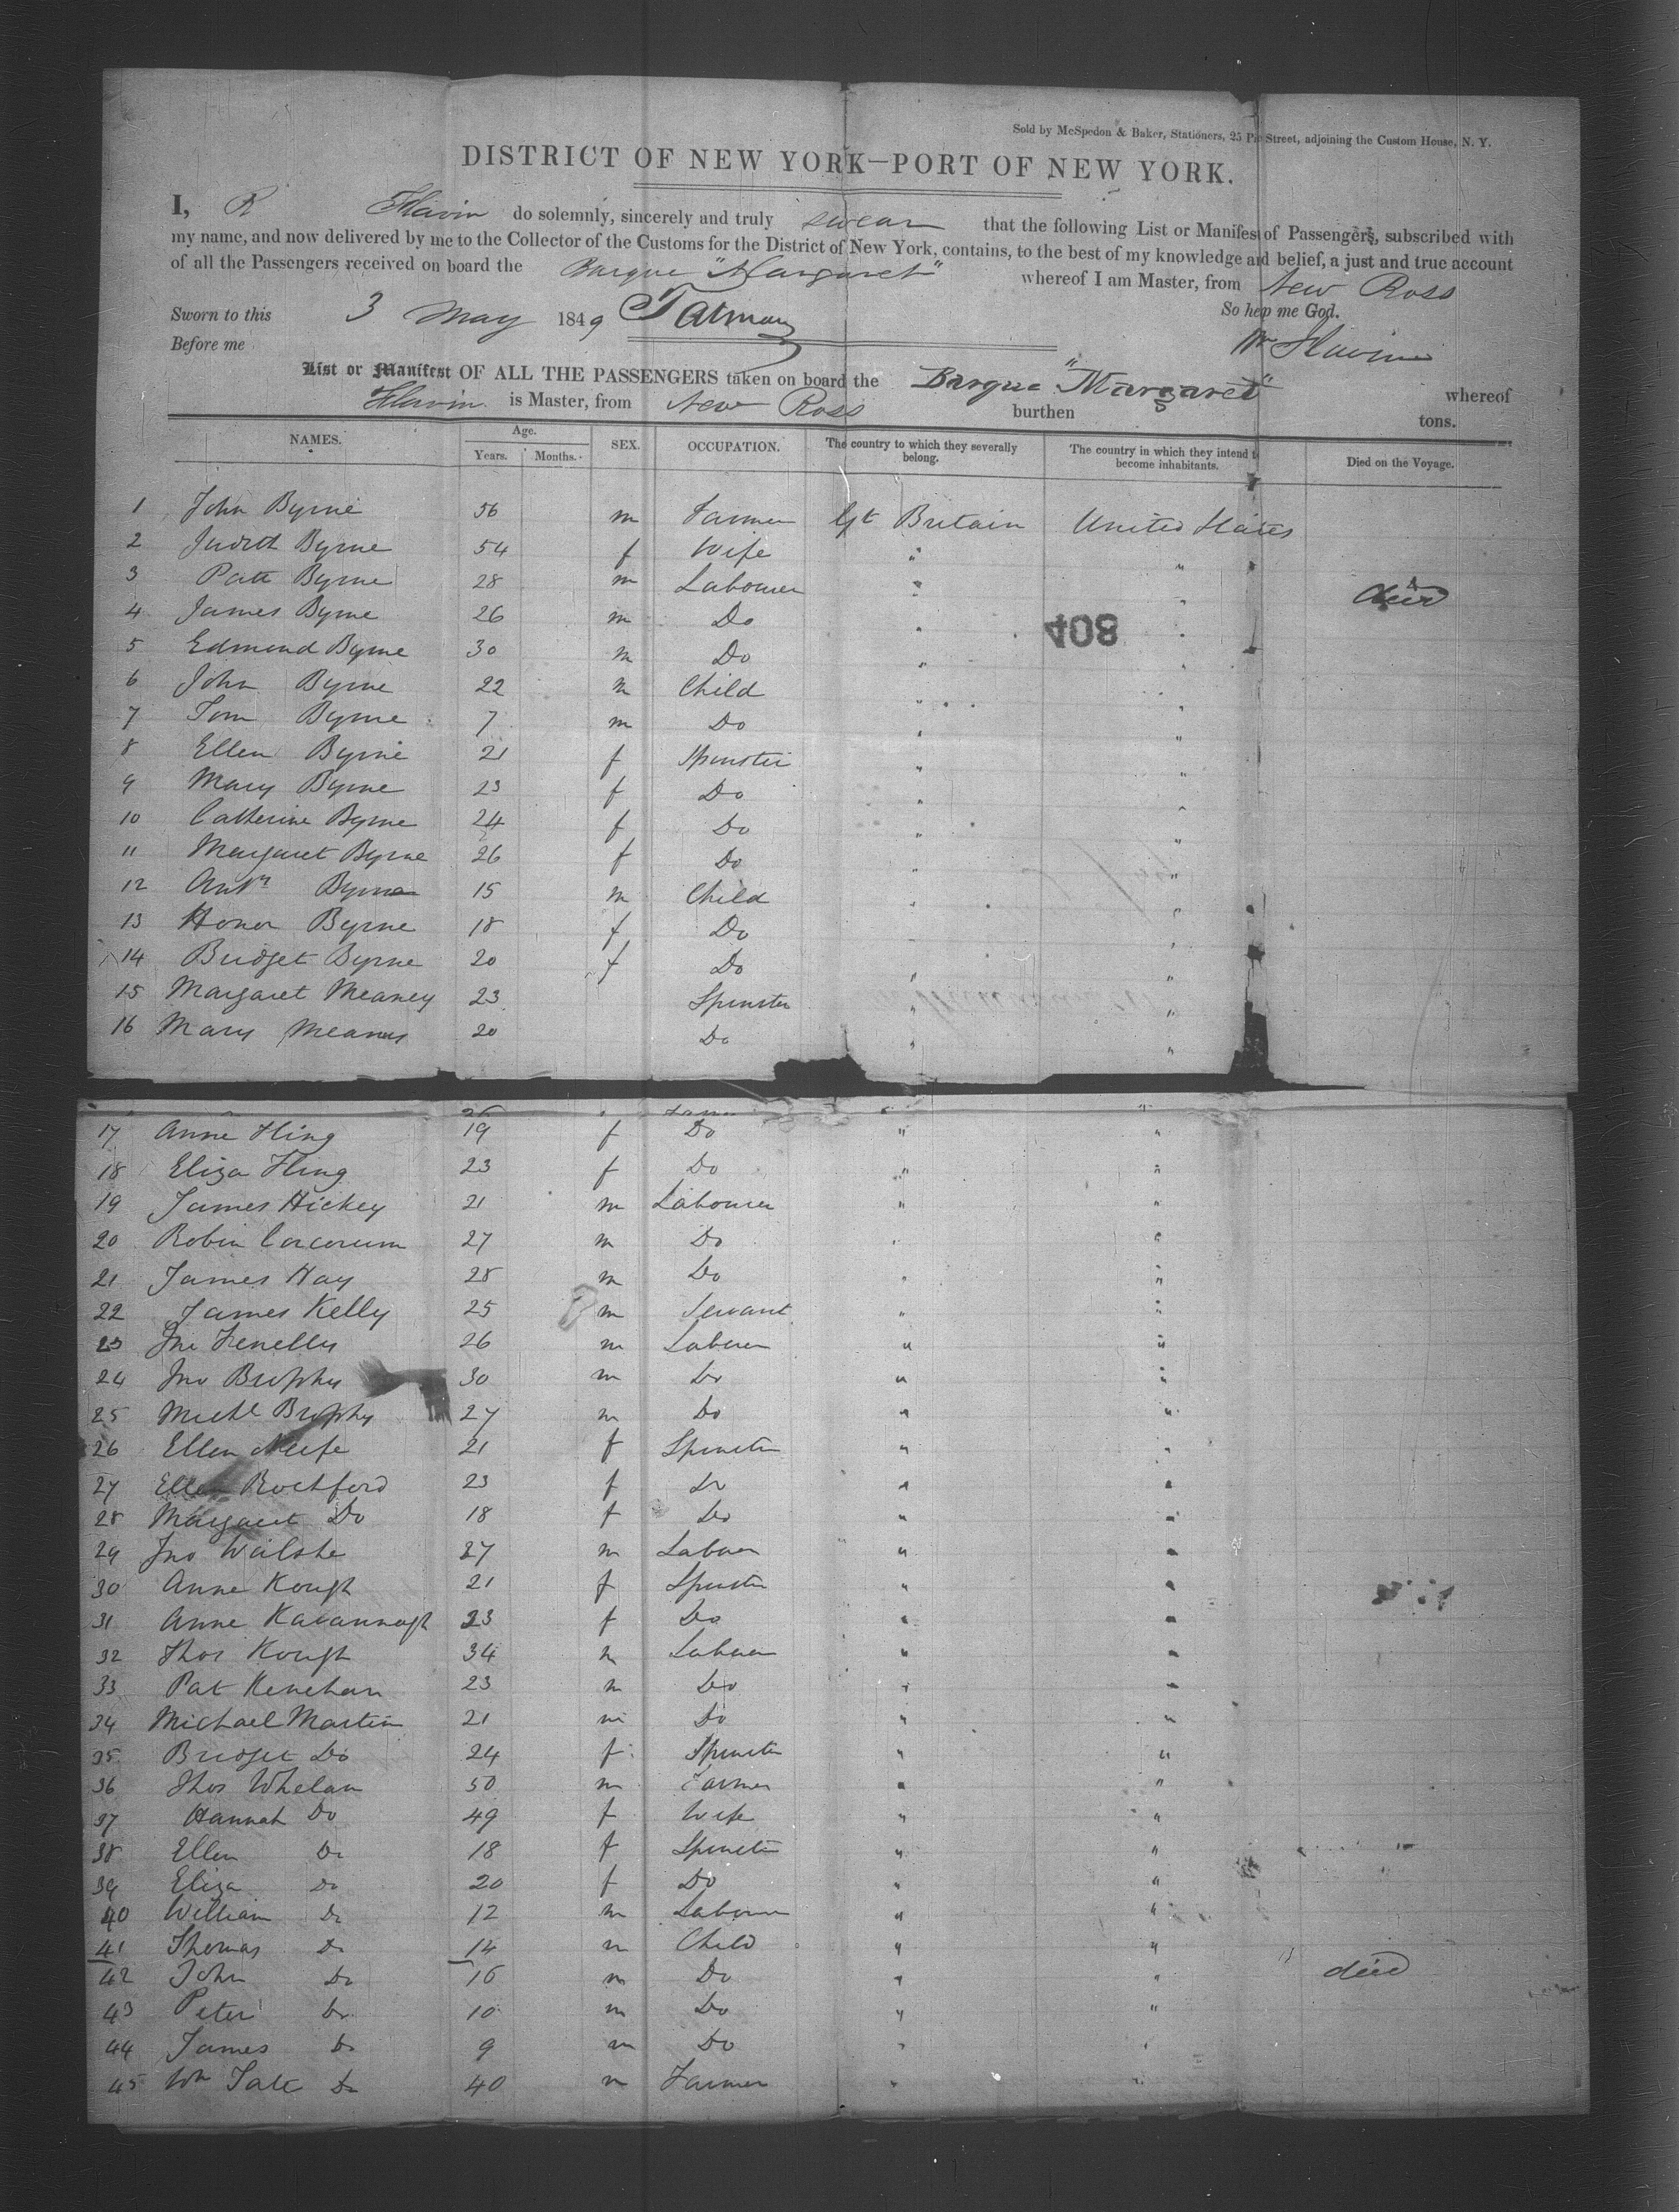 Sold by McSpedon & Baker, Stationers, 25 Pine Street, adjoining the Custom House, N. Y.
DISTRICT OF NEW YORK—PORT OF NEW YORK.
I, R Flavin do solemnly, sincerely and truly swear that the following List or Manifest of Passengers, subscribed with
my name, and now delivered by me to the Collector of the Customs for the District of New York, contains, to the best of my knowledge and belief, a just and true account
of all the Passengers received on board the Barque "Margaret" whereof I am Master, from New Ross
Sworn to this 3 May 1849 So help me God.
Before me
List or Manifest OF ALL THE PASSENGERS taken on board the Barque "Margaret" whereof
Flavin is Master, from New Ross burthen tons.
NAMES. Age. Years. Months. SEX. OCCUPATION. The country to which they severally belong. The country in which they intend to become inhabitants. Died on the Voyage.
1 John Byrne 56 m Farmer Gt Britain United States
2 Judith Byrne 54 f Wife " "
3 Patt Byrne 28 m Labourer " " died
4 James Byrne 26 m Do " "
408
5 Edmond Byrne 30 m Do " "
6 John Byrne 22 m Child " "
7 Tom Byrne 7 m Do " "
8 Ellen Byrne 21 f Spinster " "
9 Mary Byrne 23 f Do " "
10 Catherine Byrne 24 f Do " "
11 Margaret Byrne 26 f Do " "
12 Byrne 15 m Child " "
13 Honor Byrne 18 f Do " "
14 Bridget Byrne 20 f Do " "
15 Margaret Meaney 23 Spinster " "
16 Mary Meaney 20 Do " "
17 Anne Fling 19 f Do " "
18 Eliza Fling 23 f Do " "
19 James Hickey 21 m Labourer " "
20 Robin Corcorum 27 m Do " "
21 James Hay 28 m Do " "
22 James Kelly 25 m Servant " "
23 Jno Fenelly 26 m Labourer " "
24 Jno Brophy 30 m Do " "
25 Michl Brophy 27 m Do " "
26 Ellen 21 f Spinster " "
27 Ellen Rochford 23 f Do " "
28 Margaret Do 18 f Do " "
29 Jno Walshe 27 m Labourer " "
30 Anne Kough 21 f Spinster " "
31 Anne Kavannagh 23 f Do " "
32 Thos Kough 34 m Labourer " "
33 Pat Kenehan 23 m Do " "
34 Michael Martin 21 m Do " "
35 Bridget Do 24 f Spinster " "
36 Thos Whelan 50 m Farmer " "
37 Hannah Do 49 f Wife " "
38 Ellen Do 18 f Spinster " "
39 Eliza Do 20 f Do " "
40 William Do 12 m Labourer " "
41 Thomas Do 14 m Child " "
42 John Do 16 m Do " " died
43 Peter Do 10 m Do " "
44 James Do 9 m Do " "
45 Wm Tate Do 40 m Farmer " "